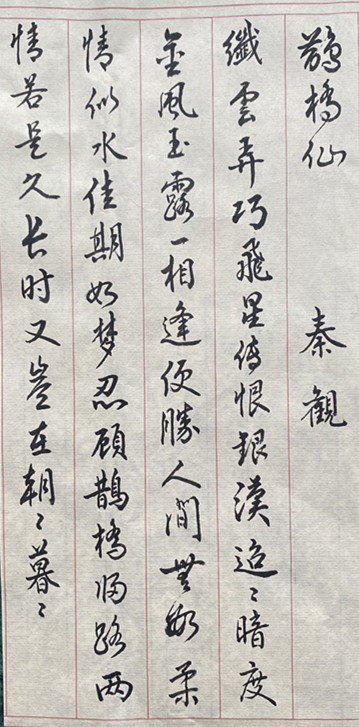 鵲橋仙 秦觀
纖雲弄巧飛星傳恨銀漢迢〻暗度
金風玉露一相逢便勝人間無數柔
情似水佳期如梦忍顧鵲橋歸路两
情若是久长时又豈在朝〻暮〻